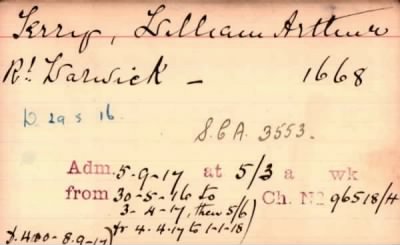 Terry, William Arthur
Rl Warwick - 1668
D 29 5 16.
S.C.A. 3553.
Adm. 5-9-17 at 5/3 a wk
from 30-5-16 to Ch. No 96518/H
3-4-17, then 5/6
fr 4-4-17 to 1-1-18)
8-9-17)